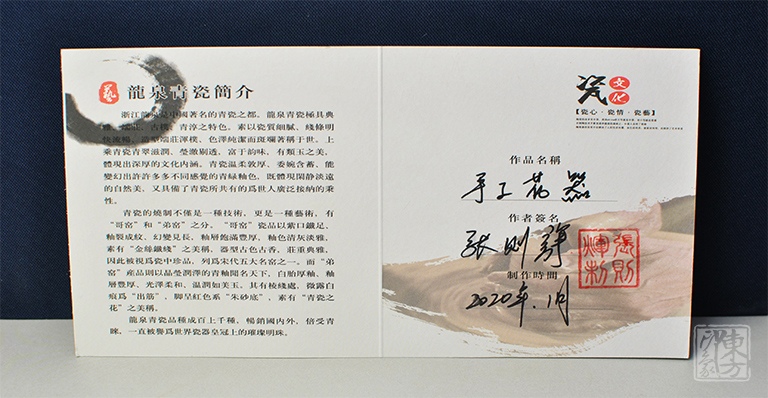 藝 龍泉青瓷簡介
浙江龍泉是中國著名的青瓷之都。龍泉青瓷極具典
青淳之特色。素以瓷質細膩、綫條明
色澤純潔而斑斕著稱于世。上
乘瓷青青翠滋潤、瑩澈剔透，富于韵味，有類玉之美，
體現出深厚的文化内涵。青瓷温柔敦厚、委婉含蓄，能
變幻出許許多多不同感覺的青緑釉色，既體現閑静淡遠
的自然美，又具備了青瓷所共有的爲世人廣泛接納的秉
性。
青瓷的燒制不僅是一種技術，更是一種藝術，有
“哥窑”和“弟窑”之分。“哥窑”瓷品以紫口鐵足、
釉裂成紋、幻變見長，釉層飽滿豐厚，釉色清灰淡雅，
素有“金絲鐵綫”之美稱，器型古色古香，莊重典雅，
因此被視爲瓷中珍品，列爲宋代五大名窑之一。而“弟
窑”産品則以晶瑩潤澤的青釉聞名天下，白胎厚釉，釉
層豐厚，光澤柔和，温潤如美玉。具有棱綫處，微露白
痕爲“出筋”，脚呈紅色系“朱砂底”，素有“青瓷之
花”之美稱。
龍泉青瓷品種成百上千種，暢銷國内外，倍受青
睞，一直被譽爲世界瓷器皇冠上的璀璨明珠。
瓷 文化
【瓷心·瓷情·瓷藝】
作品名稱
手工花器
作者簽名
張則輝
張則
輝制
制作時間
2020年.1月
東方